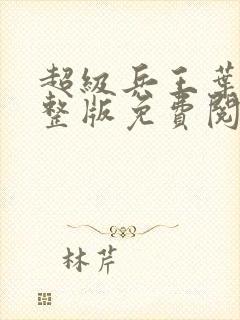 超级兵王葉
整版免費閱
林芹